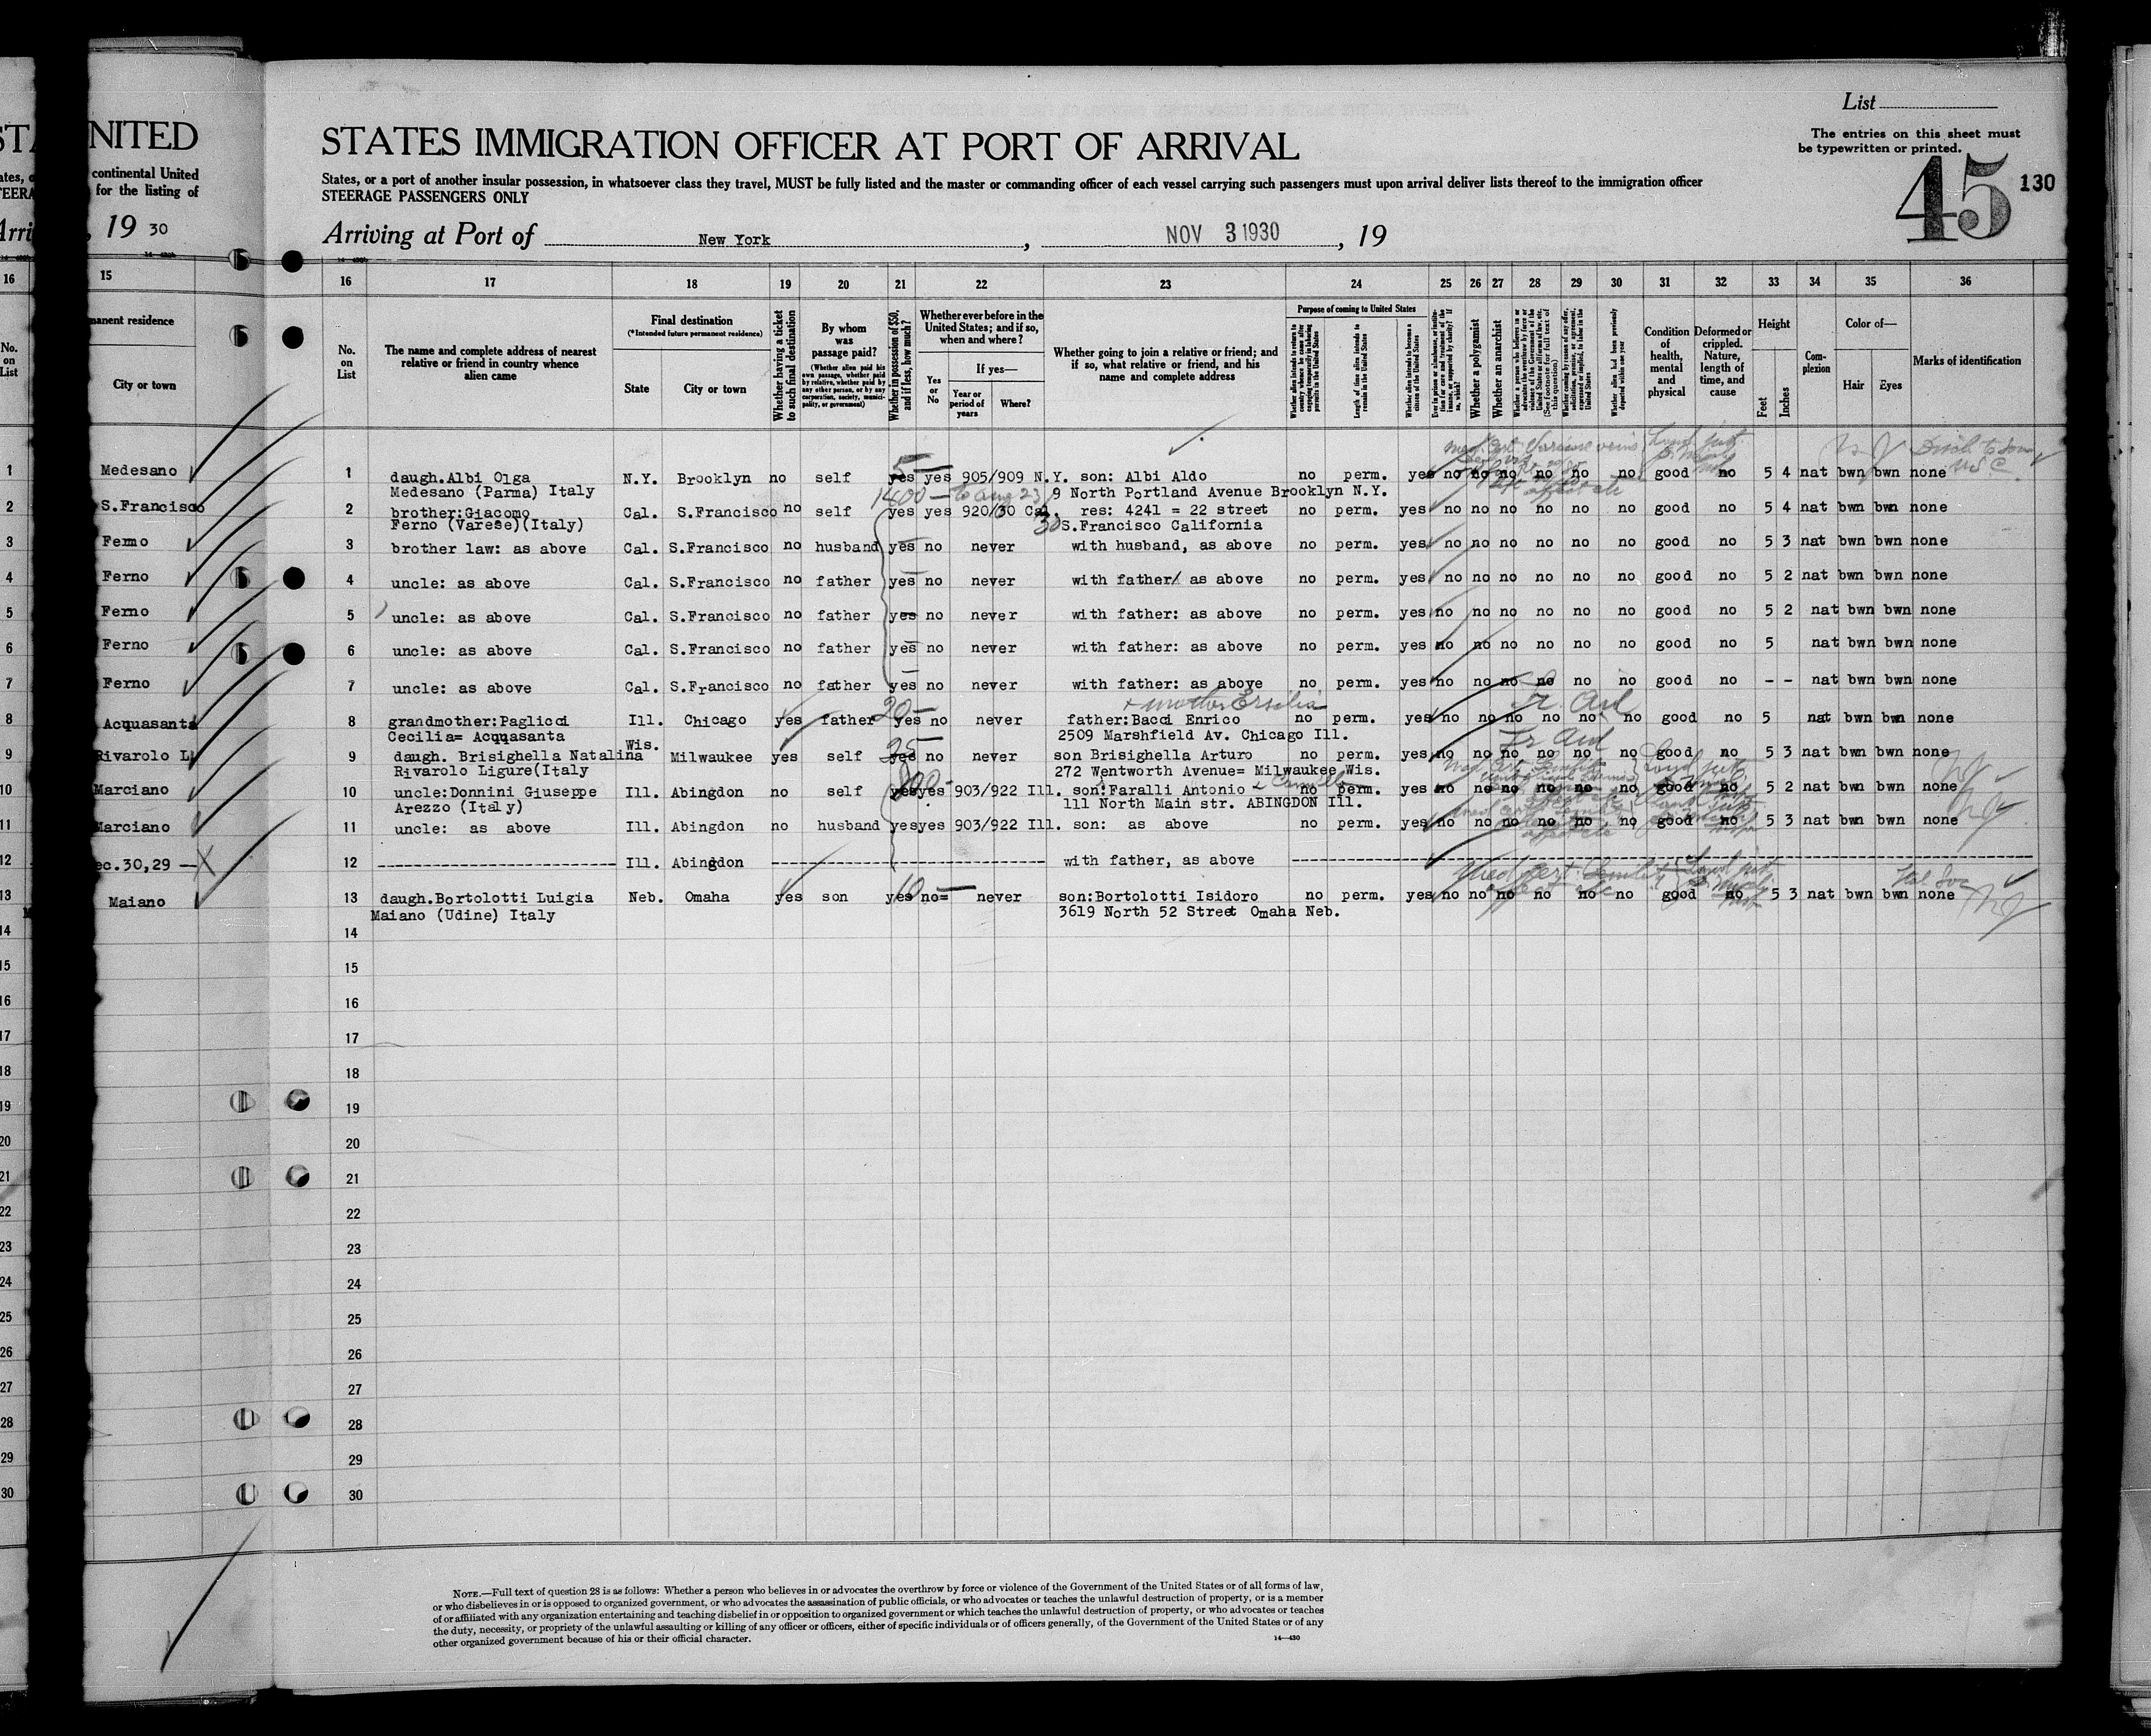 List
The entries on this sheet must
be typewritten or printed.
NITED
STATES IMMIGRATION OFFICER AT PORT OF ARRIVAL
45
130
continental United
for the listing of
States, or a port of another insular possession, in whatsoever class they travel, MUST be fully listed and the master or commanding officer of each vessel carrying such passengers must upon arrival deliver lists thereof to the immigration officer
STEERAGE PASSENGERS ONLY
, 19 30
Arriving at Port of New York, NOV 3 1930, 19
15 16 17 18 19 20 21 22 23 24 25 26 27 28 29 30 31 32 33 34 35 36
manent residence
City or town
No. on List
The name and complete address of nearest relative or friend in country whence alien came
Final destination
(*Intended future permanent residence)
State
City or town
Whether having a ticket to such final destination
By whom was passage paid?
(Whether alien paid his own passage, whether paid by relative, whether paid by any other person, or by any corporation, society, municipality, or government)
Whether in possession of $50, and if less, how much?
Whether ever before in the United States; and if so, when and where?
Yes or No
If yes—
Year or period of years
Where?
Whether going to join a relative or friend; and if so, what relative or friend, and his name and complete address
Purpose of coming to United States
Length of time alien intends to remain in the United States
Whether alien intends to become a citizen of the United States
Whether a polygamist
Whether an anarchist
Condition of health, mental and physical
Deformed or crippled. Nature, length of time, and cause
Height
Feet
Inches
Complexion
Color of—
Hair
Eyes
Marks of identification
Medesano 1 daugh.Albi Olga N.Y. Brooklyn no self 5 yes yes 905/909 N.Y. son: Albi Aldo no perm. yes no no no no no no good no 5 4 nat bwn bwn none
Medesano (Parma) Italy 9 North Portland Avenue Brooklyn N.Y.
S.Francisco 2 brother:Giacomo Cal. S.Francisco no self 1400 yes yes 920/30 Cal. res: 4241 = 22 street no perm. yes no no no no no no good no 5 4 nat bwn bwn none
Ferno (Varese)(Italy) S.Francisco California
Ferno 3 brother law: as above Cal. S.Francisco no husband yes no never with husband, as above no perm. yes no no no no no no good no 5 3 nat bwn bwn none
Ferno 4 uncle: as above Cal. S.Francisco no father yes no never with father as above no perm. yes no no no no no no good no 5 2 nat bwn bwn none
Ferno 5 uncle: as above Cal. S.Francisco no father yes no never with father: as above no perm. yes no no no no no no good no 5 2 nat bwn bwn none
Ferno 6 uncle: as above Cal. S.Francisco no father yes no never with father: as above no perm. yes no no no no no no good no 5 nat bwn bwn none
Ferno 7 uncle: as above Cal. S.Francisco no father yes no never with father: as above no perm. yes no no no no no no good no - - nat bwn bwn none
+ mother Ersilia
Acquasanta 8 grandmother:Paglicci Ill. Chicago yes father 20 yes no never father:Bacci Enrico no perm. yes no no no no no no good no 5 nat bwn bwn none
Cecilia= Acquasanta 2509 Marshfield Av. Chicago Ill.
Rivarolo L 9 daugh. Brisighella Natalina Wis. Milwaukee yes self 25 yes no never son Brisighella Arturo no perm. yes no no no no no no good no 5 3 nat bwn bwn none
Rivarolo Ligure(Italy 272 Wentworth Avenue= Milwaukee Wis.
Marciano 10 uncle:Donnini Giuseppe Ill. Abingdon no self yes yes 903/922 Ill. son:Faralli Antonio no perm. yes no no no no no no good no 5 2 nat bwn bwn none
Arezzo (Italy) 111 North Main str. ABINGDON Ill.
Marciano 11 uncle: as above Ill. Abingdon no husband yes yes 903/922 Ill. son: as above no perm. yes no no no no no no good no 5 3 nat bwn bwn none
ec.30,29 — X 12 Ill. Abingdon with father, as above
Maiano 13 daugh.Bortolotti Luigia Neb. Omaha yes son 10 yes no= never son:Bortolotti Isidoro no perm. yes no no no no no no good no 5 3 nat bwn bwn none
Maiano (Udine) Italy 3619 North 52 Street Omaha Neb.
14
15
16
17
18
19
20
21
22
23
24
25
26
27
28
29
30
NOTE.—Full text of question 28 is as follows: Whether a person who believes in or advocates the overthrow by force or violence of the Government of the United States or of all forms of law,
or who disbelieves in or is opposed to organized government, or who advocates the assassination of public officials, or who advocates or teaches the unlawful destruction of property, or is a member
of or affiliated with any organization entertaining and teaching disbelief in or opposition to organized government or which teaches the unlawful destruction of property, or who advocates or teaches
the duty, necessity, or propriety of the unlawful assaulting or killing of any officer or officers, either of specific individuals or of officers generally, of the Government of the United States or of any
other organized government because of his or their official character.
14—430